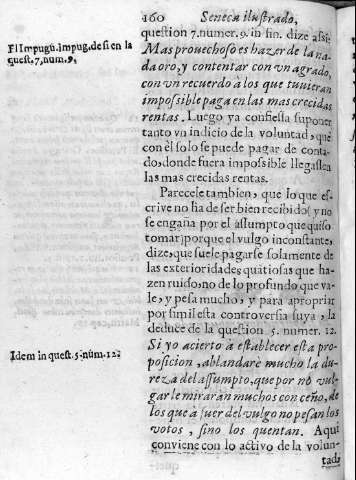 160 Seneca ilustrado,
question 7. numer. 9. in fin. dize assi:
Mas prouechoso es hazer de la na-
da oro, y contentar con vn agrado,
con vn recuerdo à los que tuuieran
impossible paga en las mas crecidas
rentas. Luego ya confiessa suponer
tanto vn indicio de la voluntad, que
con èl solo se puede pagar de conta-
do, donde fuera impossible llegassen
las mas crecidas rentas.
Parecele tambien, que lo que es-
crive no ha de ser bien recibido( y no
se engaña por el assumpto que quiso
tomar)porque el vulgo inconstante,
dize, que suele pagarse solamente de
las exterioridades quatiosas que ha-
zen ruido, no de lo profundo que va-
le, y pesa mucho, y para apropriar
por simil esta controversia suya, la
deduce de la question 5. numer. 12.
Si yo acierto à establecer esta pro-
posicion, ablandarè mucho la du-
reza del assumpto, que por nò vul-
gar le miraràn muchos con ceño, de
los que à fuer del vulgo no pesan los
votos, sino los quentan. Aqui
conviene con lo activo de la volun-
tad,
El Impugn. Impug. de si en la
quest. 7. num. 9.
Idem in quest. 5. num. 12.